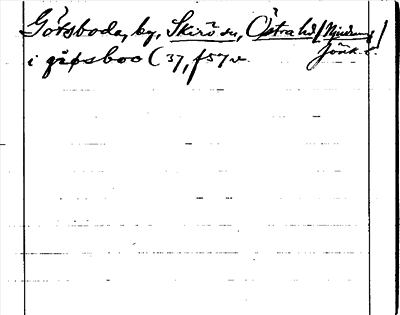 Görsboda, by, Skirö sn, Östra hd (Njudung)
Jönk. l.
i gørsboo (37, f57v.